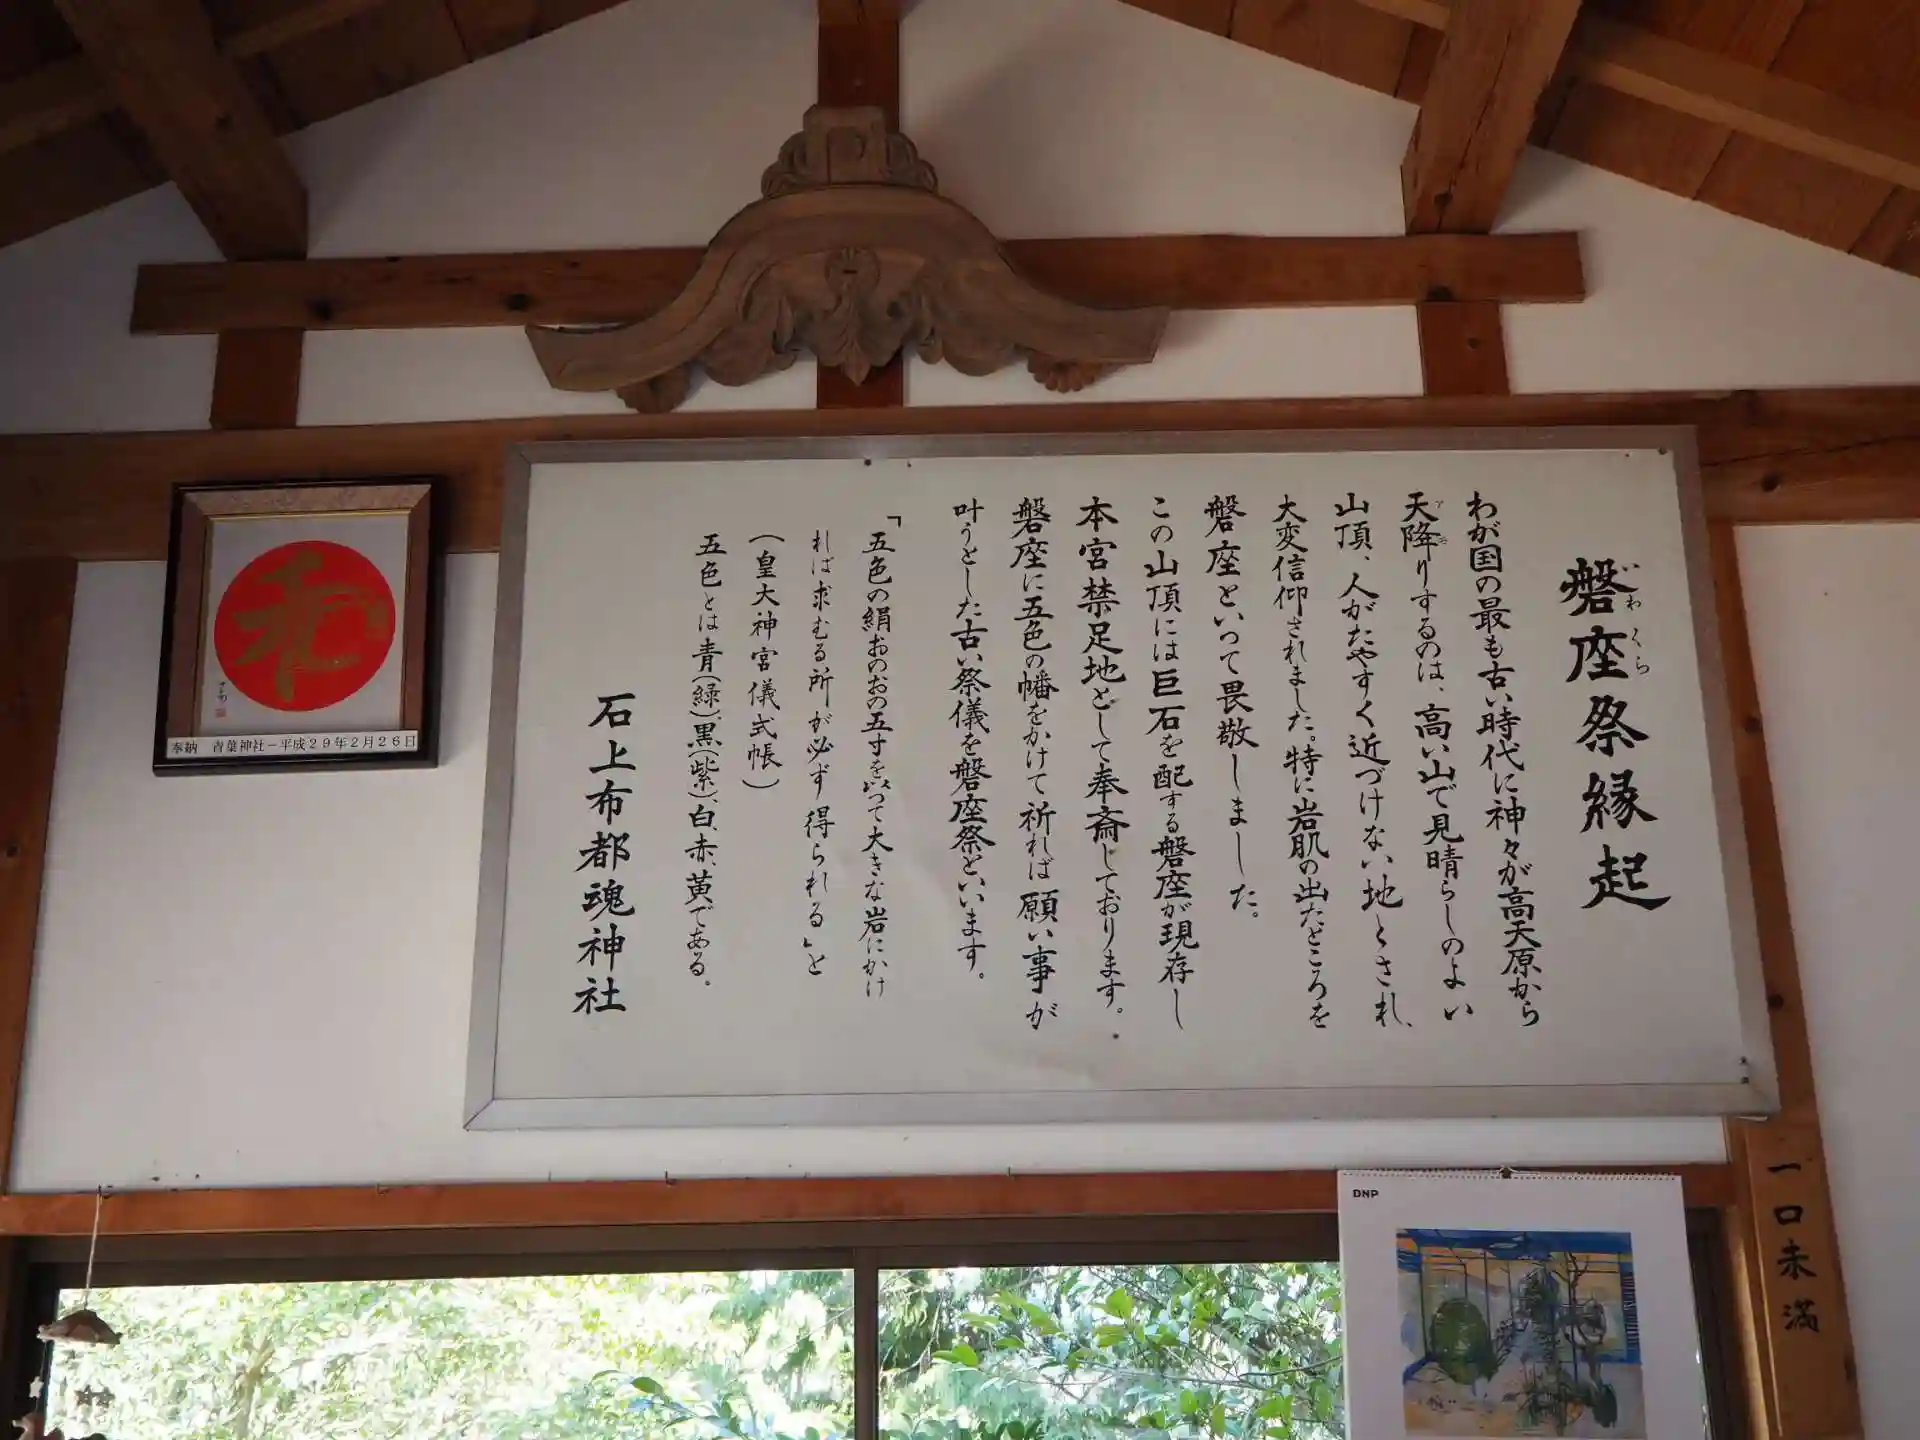 磐座祭縁起
いわくら
わが国の最も古い時代に神々が高天原から
天降りするのは、高い山で見晴らしのよい
山頂、人がたやすく近づけない地とされ、
大変信仰されました。特に岩肌の出たところを
磐座といって畏敬しました。
この山頂には巨石を配する磐座が現存し
本宮禁足地として奉斎しております。
磐座に五色の幡をかけて祈れば願い事が
叶うとした古い祭儀を磐座祭といいます。
「五色の絹おのおの五寸を以つて大きな岩にかけ
れば求むる所が必ず得られる」と
(皇大神宮儀式帳)
五色とは青(緑)、黒(紫)、白、赤、黄である。
石上布都魂神社
奉納 青葉神社ー平成29年2月26日
DNP
一口未満